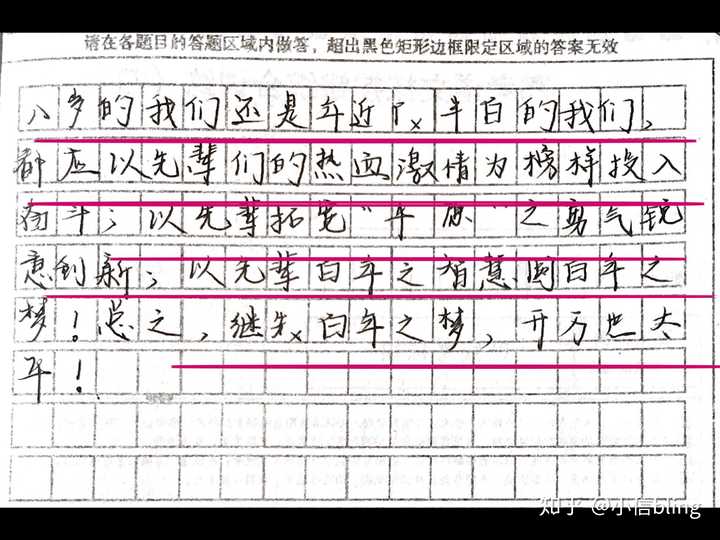 请在各题目的答题区域内做答，超出黑色矩形边框限定区域的答案无效
八岁的我们还是年近半百的我们，
都应以先辈们的热血激情为榜样投入
奋斗；以先辈拓宽“平原”之勇气锐
意创新；以先辈百年之智慧圆百年之
梦！总之，继先百年之梦，开万世太
平！
知乎 @小信bling